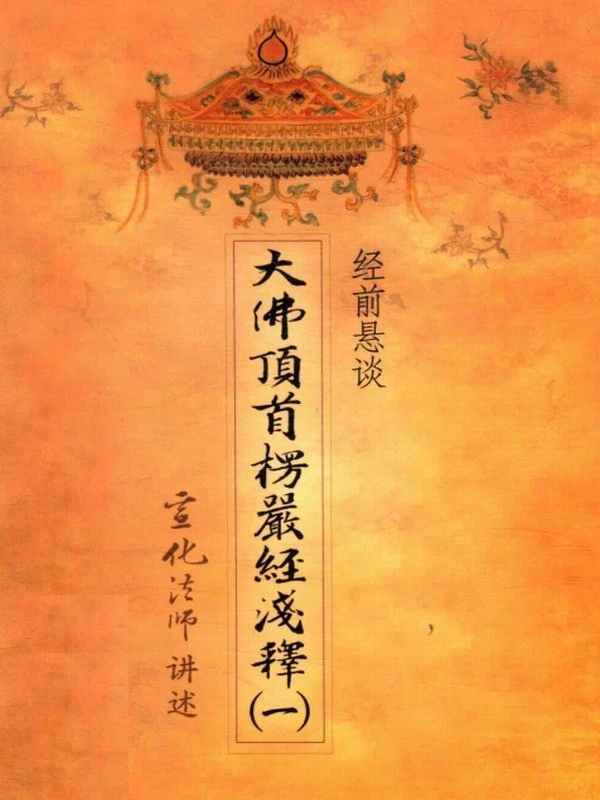 经前悬谈
大佛頂首楞嚴經淺釋(一)
宣化法师 讲述